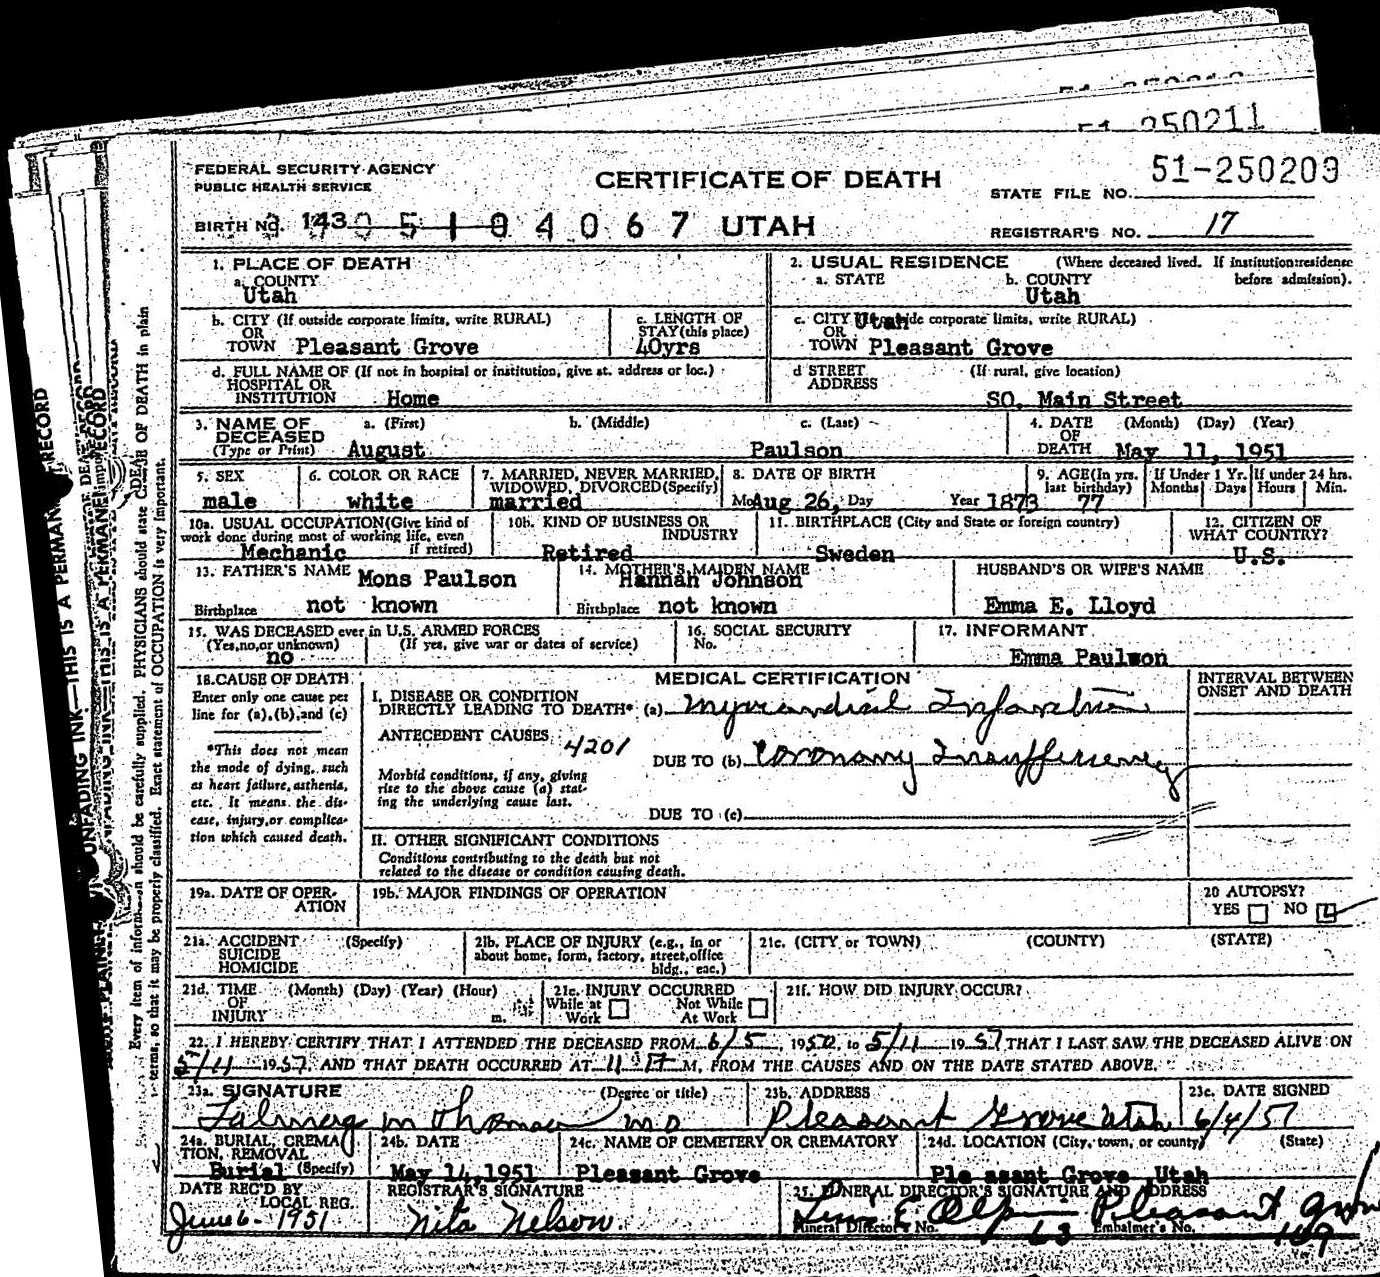 51-250211
FEDERAL SECURITY AGENCY
PUBLIC HEALTH SERVICE
CERTIFICATE OF DEATH
51-250209
STATE FILE NO.
BIRTH NO. 143
0 5 1 0 4 0 6 7 UTAH
REGISTRAR'S NO. 17
1. PLACE OF DEATH
a. COUNTY
Utah
2. USUAL RESIDENCE (Where deceased lived. If institution:residence before admission).
a. STATE
Utah
b. COUNTY
Utah
b. CITY (If outside corporate limits, write RURAL)
OR
TOWN Pleasant Grove
c. LENGTH OF
STAY(this place)
40yrs
c. CITY (If outside corporate limits, write RURAL)
OR
TOWN Pleasant Grove
d. FULL NAME OF (If not in hospital or institution, give st. address or loc.)
HOSPITAL OR
INSTITUTION Home
d STREET (If rural, give location)
ADDRESS
SO. Main Street
3. NAME OF DECEASED
(Type or Print)
a. (First) b. (Middle) c. (Last)
August Paulson
4. DATE OF DEATH
(Month) (Day) (Year)
May 11, 1951
5. SEX
male
6. COLOR OR RACE
white
7. MARRIED, NEVER MARRIED,
WIDOWED, DIVORCED(Specify)
married
8. DATE OF BIRTH
Mo Aug 26, Day Year 1873
9. AGE(In yrs.
last birthday)
77
If Under 1 Yr.
Months Days
If under 24 hrs.
Hours Min.
10a. USUAL OCCUPATION(Give kind of
work done during most of working life, even
if retired)
Mechanic
10b. KIND OF BUSINESS OR
INDUSTRY
Retired
11. BIRTHPLACE (City and State or foreign country)
Sweden
12. CITIZEN OF
WHAT COUNTRY?
U.S.
13. FATHER'S NAME Mons Paulson
Birthplace not known
14. MOTHER'S MAIDEN NAME
Hannah Johnson
Birthplace not known
HUSBAND'S OR WIFE'S NAME
Emma E. Lloyd
15. WAS DECEASED ever in U.S. ARMED FORCES
(Yes,no,or unknown) (If yes, give war or dates of service)
no
16. SOCIAL SECURITY
No.
17. INFORMANT
Emma Paulson
18.CAUSE OF DEATH
Enter only one cause per
line for (a),(b),and (c)
*This does not mean
the mode of dying, such
as heart failure,asthenia,
etc. It means the dis-
ease, injury,or complica-
tion which caused death.
MEDICAL CERTIFICATION
INTERVAL BETWEEN
ONSET AND DEATH
I. DISEASE OR CONDITION
DIRECTLY LEADING TO DEATH* (a) Myocardial Infarction
ANTECEDENT CAUSES 4201
DUE TO (b) Coronary Insufficiency
Morbid conditions, if any, giving
rise to the above cause (a) stat-
ing the underlying cause last.
DUE TO (c)
II. OTHER SIGNIFICANT CONDITIONS
Conditions contributing to the death but not
related to the disease or condition causing death.
19a. DATE OF OPER-
ATION
19b. MAJOR FINDINGS OF OPERATION
20 AUTOPSY?
YES NO
21a. ACCIDENT (Specify)
SUICIDE
HOMICIDE
21b. PLACE OF INJURY (e.g., in or
about home, form, factory, street,office
bldg., eac.)
21c. (CITY or TOWN) (COUNTY) (STATE)
21d. TIME (Month) (Day) (Year) (Hour)
OF
INJURY m.
21e. INJURY OCCURRED
While at Work Not While At Work
21f. HOW DID INJURY OCCUR?
22. I HEREBY CERTIFY THAT I ATTENDED THE DECEASED FROM 6/5, 1950, to 5/11 1951 THAT I LAST SAW THE DECEASED ALIVE ON
5/11 1951, AND THAT DEATH OCCURRED AT 11 P M. FROM THE CAUSES AND ON THE DATE STATED ABOVE.
23a. SIGNATURE (Degree or title)
M D
23b. ADDRESS
Pleasant Grove Utah
23c. DATE SIGNED
6/4/51
24a. BURIAL, CREMA
TION, REMOVAL
Burial (Specify)
24b. DATE
May 14,1951
24c. NAME OF CEMETERY OR CREMATORY
Pleasant Grove
24d. LOCATION (City, town, or county) (State)
Ple asant Grove, Utah
DATE REC'D BY
LOCAL REG.
June 6 - 1951
REGISTRAR'S SIGNATURE
Nita Nelson.
25. FUNERAL DIRECTOR'S SIGNATURE AND ADDRESS
Pleasant Grove
Funeral Director's No. 63 Embalmer's No.
Every item of information should be carefully supplied. PHYSICIANS should state CAUSE OF DEATH in plain
terms, so that it may be properly classified. Exact statement of OCCUPATION is very important.
UNFADING INK—THIS IS A PERMANENT RECORD